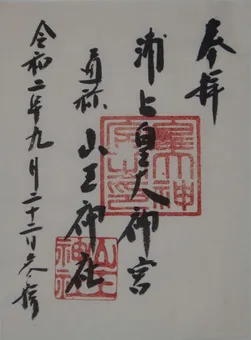 奉拝
浦上皇大神宮
通称 山王神社
令和二年九月二十二日参拝
山王
神社